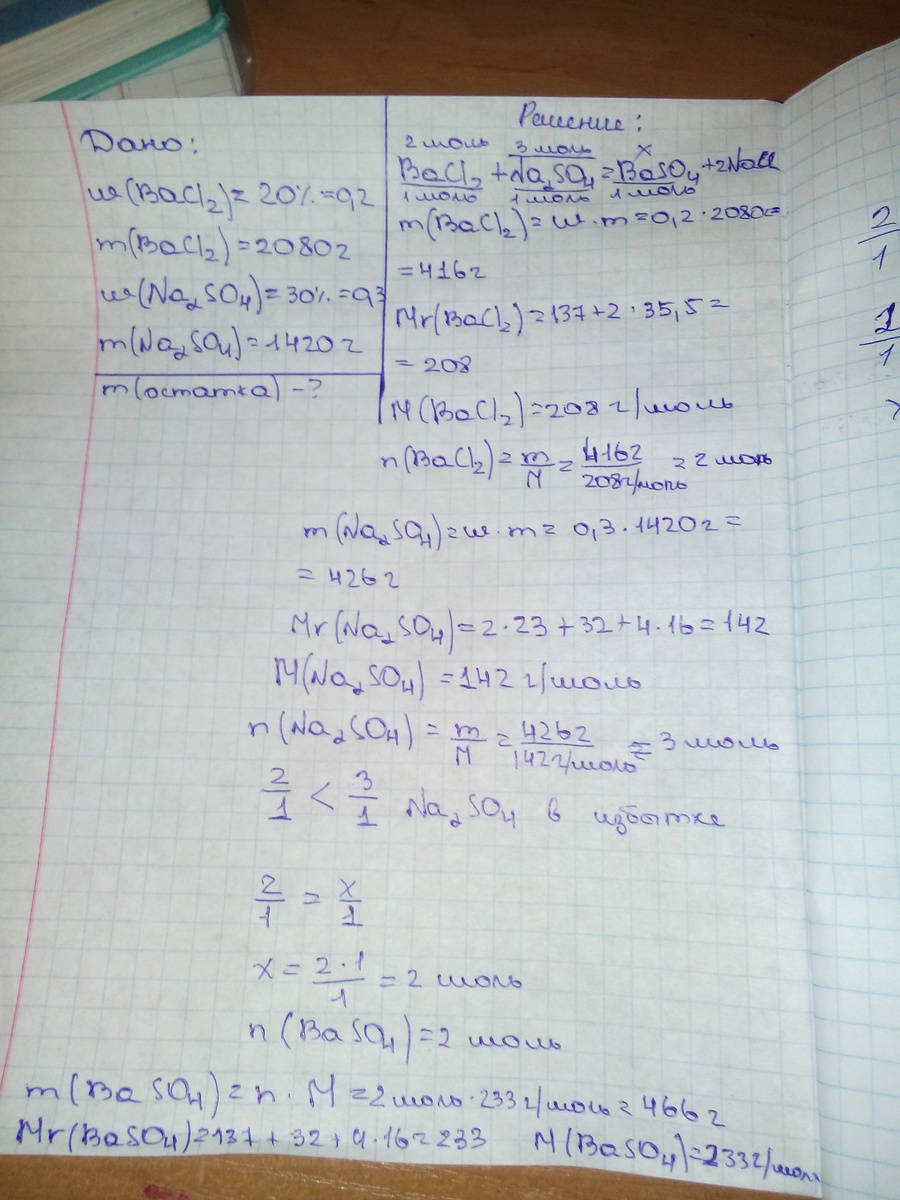 Дано:
w(BaCl₂)=20%=0,2
m(BaCl₂)=2080г
w(Na₂SO₄)=30%=0,3
m(Na₂SO₄)=1420г
m(остатка)-?
Решение:
2 моль 3 моль x
BaCl₂+Na₂SO₄=BaSO₄+2NaCl
1 моль 1 моль 1 моль
m(BaCl₂)=w·m=0,2·2080=
=416г
Mr(BaCl₂)=137+2·35,5=
=208
M(BaCl₂)=208г/моль
n(BaCl₂)=m/M=416г/208г/моль=2 моль
m(Na₂SO₄)=w·m=0,3·1420г=
=426г
Mr(Na₂SO₄)=2·23+32+4·16=142
M(Na₂SO₄)=142г/моль
n(Na₂SO₄)=m/M=426г/142г/моль=3 моль
2/1<3/1 Na₂SO₄ в избытке
2/1=x/1
x=2·1/1=2 моль
n(BaSO₄)=2 моль
m(BaSO₄)=n·M=2моль·233г/моль=466г
Mr(BaSO₄)=137+32+4·16=233 M(BaSO₄)=233г/моль
2/1
1/1